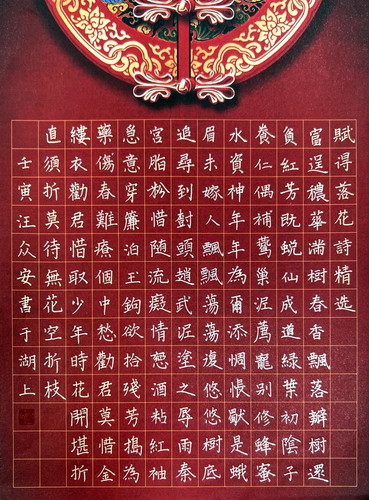 賦得落花詩精选
富逞穠華滿樹春香飄落瓣樹還
貧紅芳既蜕仙成道綠葉初陰子
養仁偶補鶯巢泥薦寵别修蜂蜜
水資神年年為爾添惆悵猒是蛾
眉未嫁人飄飄蕩蕩復悠悠樹底
追尋到樹頭趙武泥塗之辱雨秦
宮脂粉惜随流癡情恕酒粘紅袖
急意穿簾泊王鉤欲拾殘芳搗為
藥傷春難療個中愁勸君莫惜金
縷衣勸君惜取少年時花開堪折
直須折莫待無花空折枝
壬寅汪众安書于湖上